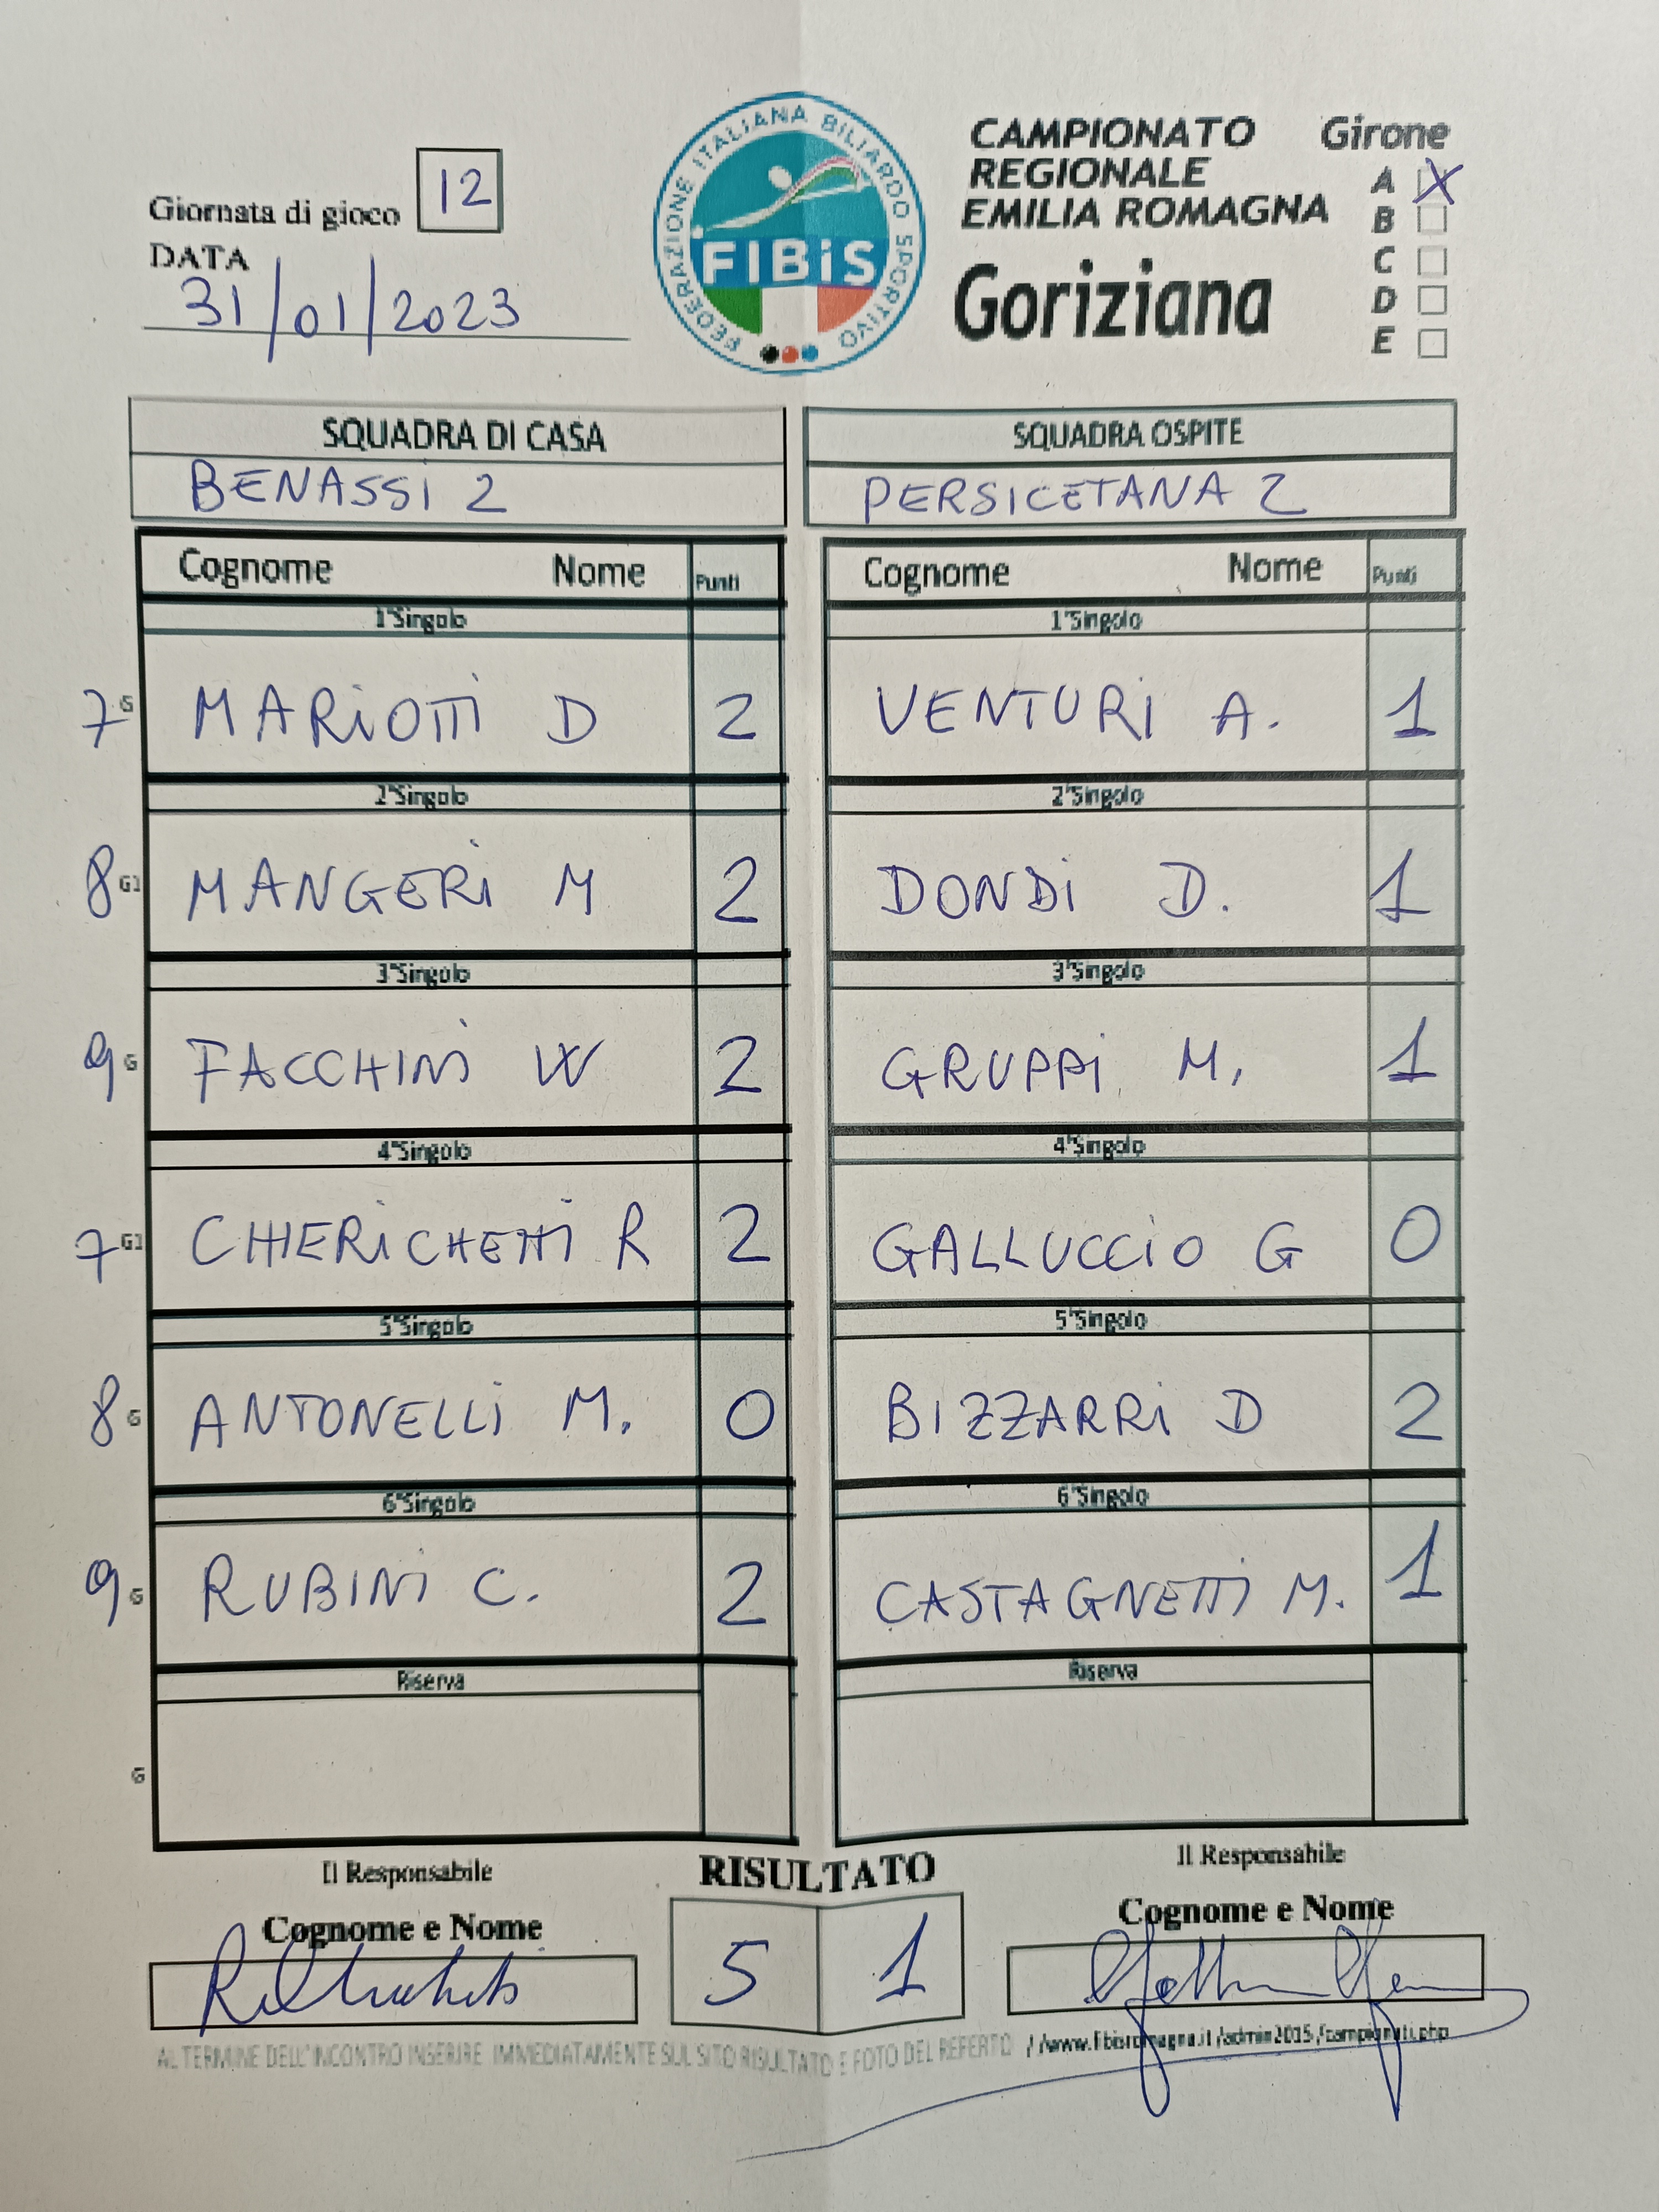 Giornata di gioco 12
DATA
31/01/2023
FEDERAZIONE ITALIANA BILIARDO SPORTIVO
FIBiS
CAMPIONATO
REGIONALE
EMILIA ROMAGNA
Goriziana
Girone
A X
B
C
D
E
SQUADRA DI CASA SQUADRA OSPITE
BENASSi 2 PERSICETANA 2
Cognome Nome Punti Cognome Nome Punti
1°Singolo 1°Singolo
7 G MARiOTTi D 2 VENTURi A. 1
2°Singolo 2°Singolo
8 G1 MANGERi M 2 DONDi D. 1
3°Singolo 3°Singolo
9 G FACCHINi W 2 GRUPPi M. 1
4°Singolo 4°Singolo
7 G1 CHIERiCHETTi R 2 GALLUCCiO G 0
5°Singolo 5°Singolo
8 G ANTONELLi M. 0 BIZZARRi D 2
6°Singolo 6°Singolo
9 G RUBINi C. 2 CASTAGNETTi M. 1
Riserva Riserva
G
Il Responsabile RISULTATO Il Responsabile
Cognome e Nome Cognome e Nome
5 1
AL TERMINE DELL'INCONTRO INSERIRE IMMEDIATAMENTE SUL SITO RISULTATO E FOTO DEL REFERTO //www.fibisromagna.it/admin2015/campionati.php